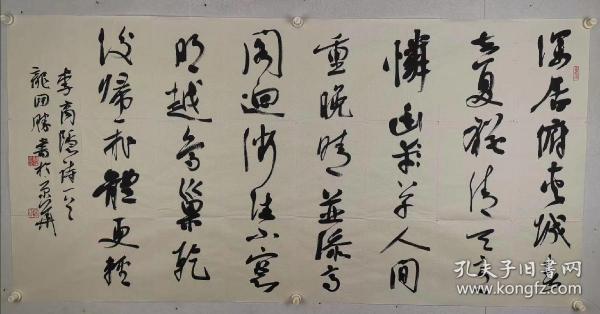 深居俯夾城春
去夏猶清天意
憐幽草人間
重晚晴並添高
閣迥微注小窗
明越鳥巢乾
後歸飛體更輕
李商隱詩一首
龍開勝書於京華
孔夫子旧书网
www.kongfz.com